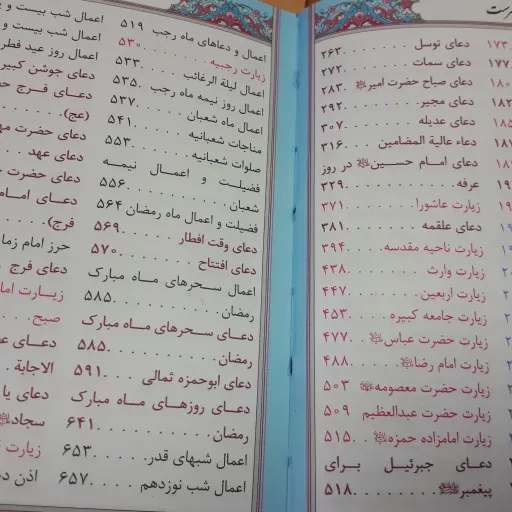 فهرست
۱۷۳
۱۷۷
۱۸۰
۱۸۲
۱۸۵
دعای توسل . . . . . . . . . ۲۶۳
دعای سمات . . . . . . . . . ۲۷۲
دعای صباح حضرت امیر ﷺ . ۲۸۳
دعای مجیر . . . . . . . . . ۲۹۲
دعای عدیله . . . . . . . . . ۳۰۷
دعاء عالیة المضامین . . . ۳۱۶
دعای امام حسین ﷺ در روز
عرفه . . . . . . . . . . . . ۳۲۹
زیارت عاشورا . . . . . . . ۳۷۱
دعای علقمه . . . . . . . . ۳۸۱
زیارت ناحیه مقدسه . . . . ۳۹۴
زیارت وارث . . . . . . . . ۴۳۸
زیارت اربعین . . . . . . . ۴۴۷
زیارت جامعه کبیره . . . . ۴۵۳
زیارت حضرت عباس ﷺ . . ۴۷۷
زیارت امام رضا ﷺ . . . . ۴۸۸
زیارت حضرت معصومه ﷺ ۵۰۳
زیارت حضرت عبدالعظیم ۵۰۹
زیارت امامزاده حمزه ﷺ . . ۵۱۵
دعای جبرئیل برای
پیغمبر ﷺ . . . . . . . . . ۵۱۸
اعمال و دعاهای ماه رجب ۵۱۹
زیارت رجبیه . . . . . . . . ۵۳۰
اعمال لیلة الرغائب . . . . ۵۳۳
اعمال روز نیمه ماه رجب . ۵۳۵
اعمال ماه شعبان . . . . . . ۵۳۷
مناجات شعبانیه . . . . . . ۵۴۱
صلوات شعبانیه . . . . . . ۵۵۳
فضیلت و اعمال نیمه
شعبان . . . . . . . . . . . ۵۵۶
فضیلت و اعمال ماه رمضان ۵۶۴
دعای وقت افطار . . . . . . ۵۶۹
دعای افتتاح . . . . . . . . ۵۷۰
اعمال سحرهای ماه مبارک
رمضان . . . . . . . . . . . ۵۸۵
دعای سحرهای ماه مبارک
رمضان . . . . . . . . . . . ۵۸۵
دعای ابوحمزه ثمالی . . . ۵۹۱
دعای روزهای ماه مبارک
رمضان . . . . . . . . . . . ۶۴۱
اعمال شبهای قدر . . . . . ۶۵۳
اعمال شب نوزدهم . . . . ۶۵۷
اعمال شب بیست و
اعمال شب بیست و
اعمال روز عید فطر
دعای جوشن کبیر
دعای فرج
(عج) . . . . .
دعای حضرت
دعای عهد . . .
دعای حضرت
دعای
فرج) . . . .
حرز امام
دعای فرج
زیارت
صبح . . . .
دعای
الاجابة . .
دعای یا
سجاد ﷺ
زیارت
اذن